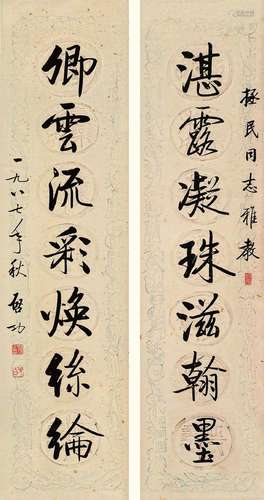 拯民同志雅教
湛露凝珠滋翰墨
卿雲流彩焕絲綸
一九八七年秋 启功